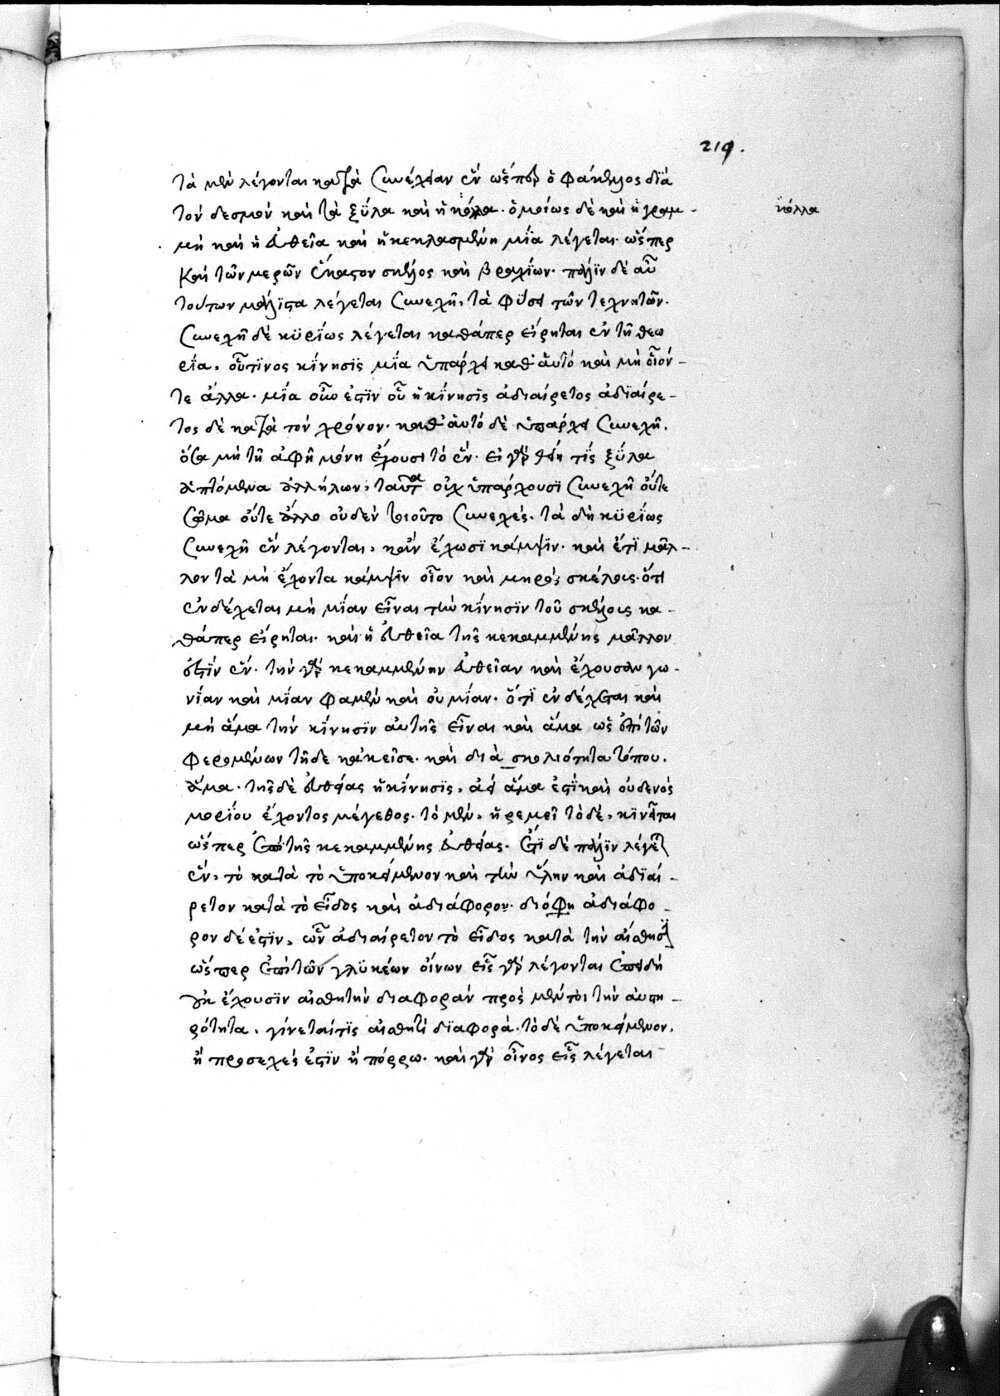 219.
τὰ μὲν λέγονται κατὰ συνέχειαν ἓν ὥσπερ ὁ φάκελος διὰ
τὸν δεσμὸν καὶ τὰ ξΰλα καὶ ἡ κόλλα. ὁμοίως δὲ καὶ ἡ γραμ-
κόλλα
μὴ καὶ ἡ εὐθεῖα καὶ ἡ κεκλασμένη μΐα λέγεται. ὥσπερ
καὶ τῶν μερῶν ἕκαστον σκέλος καὶ βραχΐων. πάλϊν δὲ αὖ
τούτων μάλϊστα λέγεται συνεχῆ, τὰ φΰσει τῶν τεχνητῶν.
συνεχῆ δὲ κϋρΐως λέγεται καθάπερ εἴρηται ἐν τῆ θεω
ρΐα, οὗτϊνος κΐνησϊς μΐα ὑπάρχει καθ' αὑτό καὶ μὴ οἷόν-
τε ἄλλα. μΐα οὖν ἐστϊν οὗ ἡ κΐνησϊς ἀδιαίρετος ἀδϊαίρε-
τος δὲ κατὰ τὸν χρόνον. καθ' αὑτό δὲ ὑπάρχει συνεχῆ.
ὅσα μὴ τῆ ἁφῆ μόνη ἔχουσι τὸ ἕν. εἰ γὰρ θείη τΐς ξΰλα
ἁπτόμενα ἀλλήλων, ταῦτα οὐχ ὑπάρχουσϊ συνεχῆ οὔτε
σῶμα οὔτε ἄλλο οὐδὲν τοιοῦτο συνεχές. τὰ δὴ κϋρΐως
συνεχῆ ἓν λέγονται, κἂν ἔχωσϊ κάμψϊν. καὶ ἔτϊ μᾶλ-
λον τὰ μὴ ἔχοντα κάμψϊν οἷον καὶ μηρὸς σκέλους. ὅτι
ἐνδέχεται μὴ μΐαν εἶναι τὴν κΐνησϊν τοῦ σκέλους κα-
θάπερ εἴρηται. καὶ ἡ εὐθεῖα τῆς κεκαμμένης μᾶλλον
ἐστΐν ἕν. τὴν γὰρ κεκαμμένην εὐθεῖαν καὶ ἔχουσαν γω-
νΐαν καὶ μΐαν φαμὲν καὶ οὐ μΐαν. ὅτϊ ἐνδέχεται καὶ
μὴ ἅμα τὴν κΐνησϊν αὐτῆς εἶναι καὶ ἅμα ὡς ἐπὶ τῶν
φερομένων τῆδε κἀκεῖσε. καὶ διὰ σκολιότητα τόπου.
ἅμα. τῆς δὲ εὐθείας ἡ κΐνησϊς, ἀεὶ ἅμα ἐστΐ καὶ οὐδενὸς
μορΐου ἔχοντος μέγεθος. τὸ μὲν, ἠρεμεῖ τὸ δὲ, κϊνεῖται
ὥσπερ ἐπὶ τῆς κεκαμμένης εὐθείας. ἔτϊ δὲ πάλϊν λέγεται
ἓν, τὸ κατὰ τὸ ὑποκείμενον καὶ τὴν ὕλην καὶ ἀδϊαί-
ρετον κατὰ τὸ εἶδος καὶ ἀδιάφορον. διόφη ἀδιάφο-
ρον δέ ἐστϊν, ὧν ἀδιαίρετον τὸ εἶδος κατὰ τὴν αἴσθησϊν
ὥσπερ ἐπὶ τῶν γλϋκέων οἴνων εἷς γὰρ λέγονται ἐπειδὴ
γῆ ἔχουσϊν αἰσθητὴν διαφορὰν πρὸς μέντοι τὴν αὐστη-
ρότητα, γίνεταί τϊς αἰσθητὴ δϊαφορά. τὸ δὲ ὑποκείμενον,
ἢ προσεχές ἐστϊν ἢ πόρρω. καὶ γὰρ οἶνος εἷς λέγεται